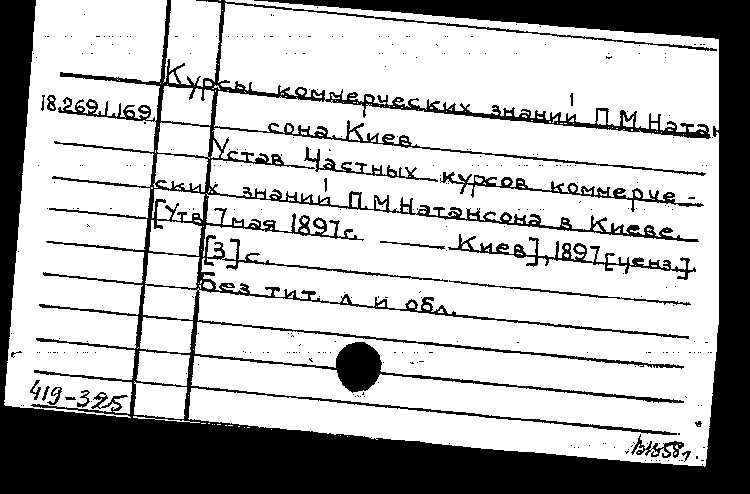 Курсы коммерческих знаний П.М.Натан
18.269.1.169.
сона. Киев.
Устав Частных курсов коммерче-
ских знаний П.М.Натансона в Киеве.
[Утв. 7 мая 1897г. — Киев], 1897 [ценз.].
[3] с.
Без тит. л и обл.
419-325